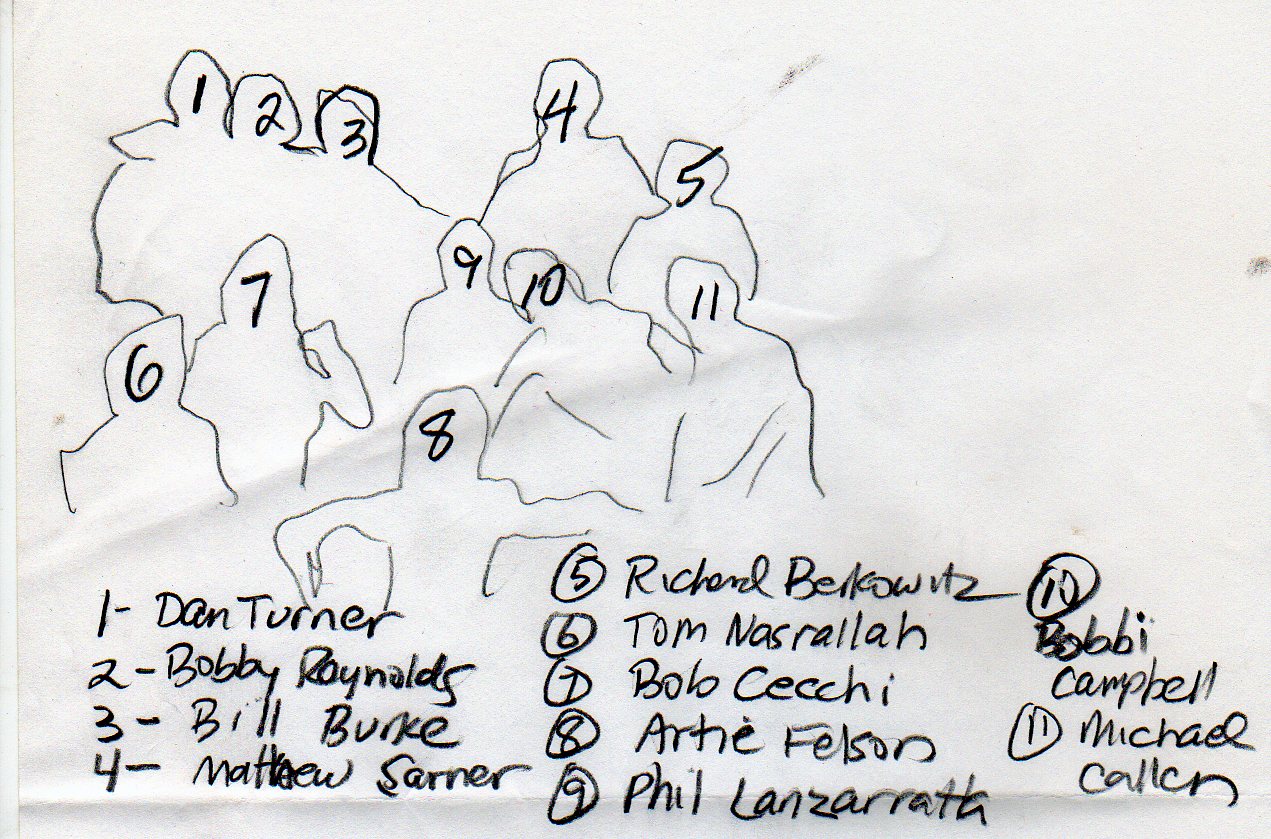 1
2
3
4
5
6
7
8
9
10
11
1- Dan Turner
2- Bobby Reynolds
3- Bill Burke
4- Mathew Sarner
5 Richard Berkowitz
6 Tom Nasrallah
7 Bob Cecchi
8 Artie Felson
9 Phil Lanzarratta
10
Bobbi
Campbell
11 Michael
Callen